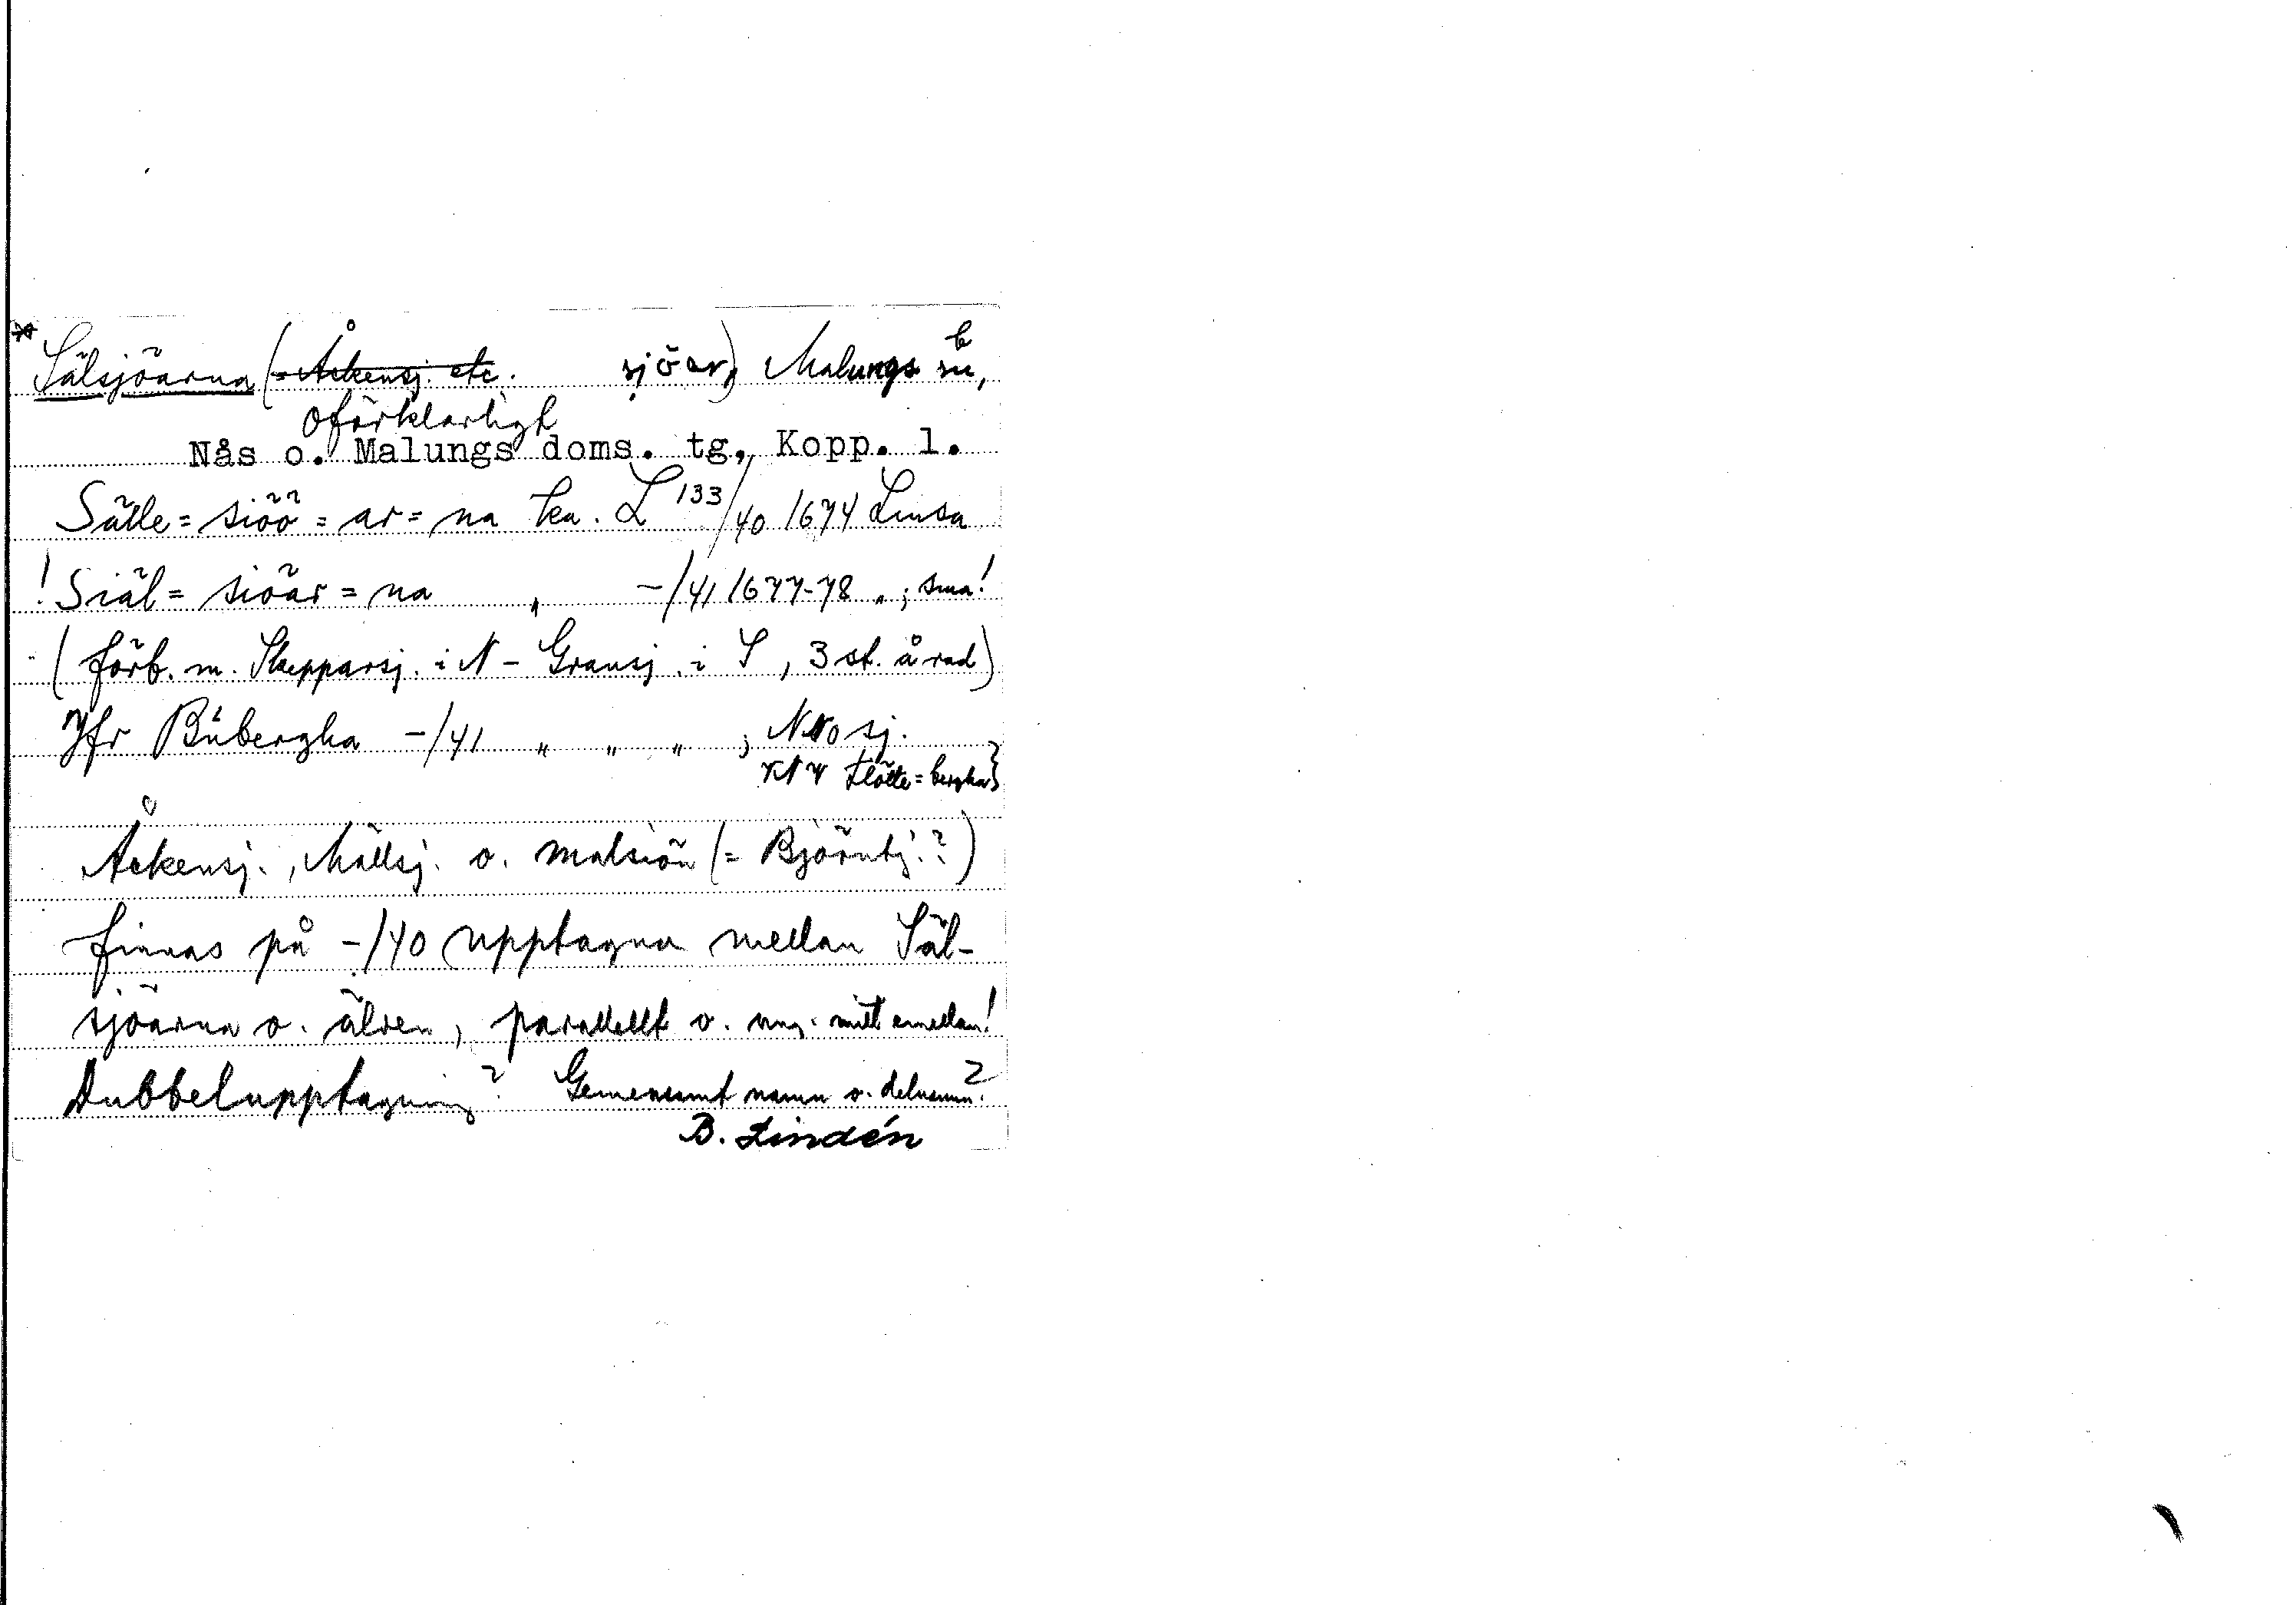 * Sälsjöarna (= Åckensj. etc. sjöar) Malungs sn,
oförklarligt
Nås o. Malungs doms. tg., Kopp. l.
Sälle = siöö = ar = na ka. L 133/40 1674
! Siäl = siöar = na " -/41 1677-78 " ; sma!
(förb. m. Skepparsj. i N - Gransj. i S, 3 st. å rad)
Jfr -/41 " " " ; sj.
Åckensj., Mällsj. o. malsiön (= Björntj.?)
finnas på -/40 upptagna mellan Säl-
sjöarna o. älven, parallellt o. mitt emellan!
Dubbelupptagning? Gemensamt namn o. delnamn?
B. Lindén